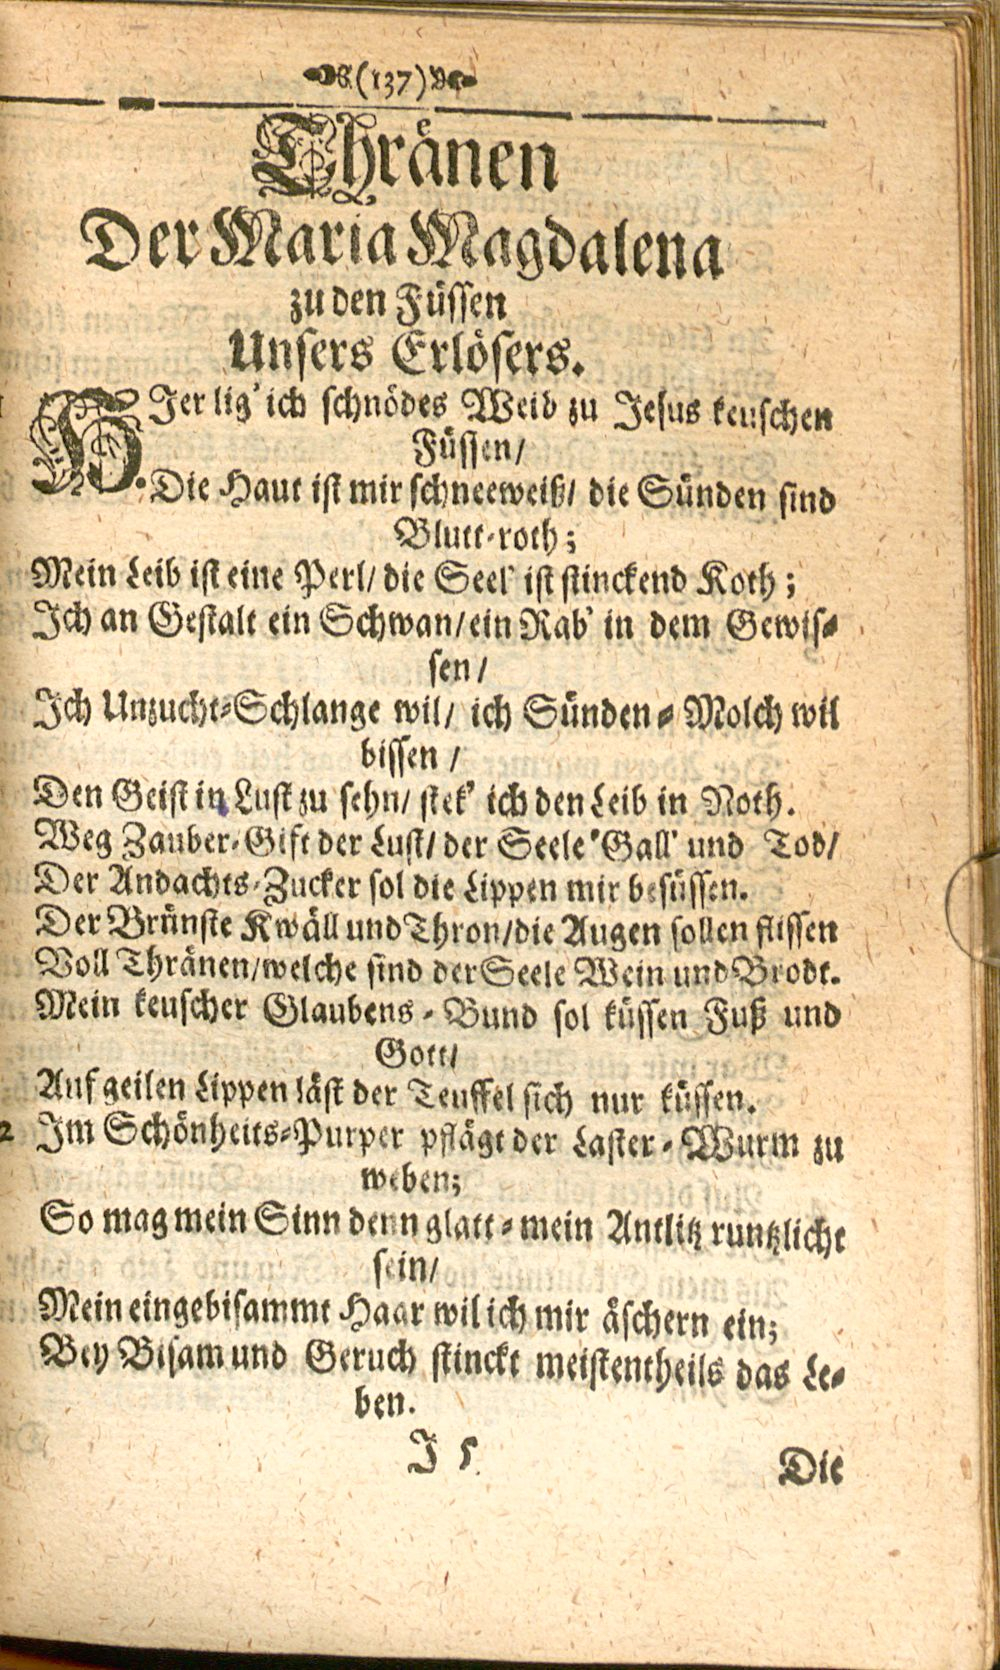 (137)
Thränen
Der Maria Magdalena
zu den Füssen
Unsers Erlösers.
HJer lig' ich schnödes Weib zu Jesus keuschen
Füssen/
Die Haut ist mir schneeweiß/ die Sünden sind
Blutt-roth;
Mein Leib ist eine Perl/ die Seel' ist stinckend Koth;
Jch an Gestalt ein Schwan/ ein Rab' in dem Gewis-
sen/
Jch Unzucht-Schlange wil/ ich Sünden-Molch wil
bissen/
Den Geist in Lust zu sehn/ stek' ich den Leib in Noth.
Weg Zauber-Gift der Lust/ der Seele Gall' und Tod/
Der Andachts-Zucker sol die Lippen mir besüssen.
Der Brünste Kwäll und Thron/ die Augen sollen flissen
Voll Thränen/ welche sind der Seele Wein und Brodt.
Mein keuscher Glaubens-Bund sol küssen Fuß und
Gott/
Auf geilen Lippen läst der Teuffel sich nur küssen.
2 Jm Schönheits-Purper pflägt der Laster-Wurm zu
weben;
So mag mein Sinn denn glatt-mein Antlitz runtzlicht
sein/
Mein eingebisammt Haar wil ich mir äschern ein;
Bey Bisam und Geruch stinckt meistentheils das Le-
ben.
J 5
Die